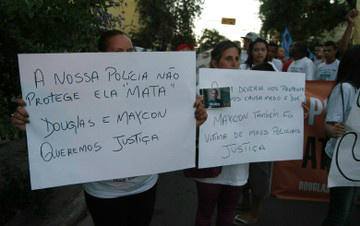 A NOSSA POLÍCIA NÃO
PROTEGE ELA "MATA"
DOUGLAS E MAYCON
QUEREMOS JUSTIÇA
DEVERIA NOS PROTEGER
NOS CAUSA MEDO E DOR
MAYCON TAMBÉM FOI
VÍTIMA DE MAUS POLICIAIS
JUSTIÇA
DOUGLAS